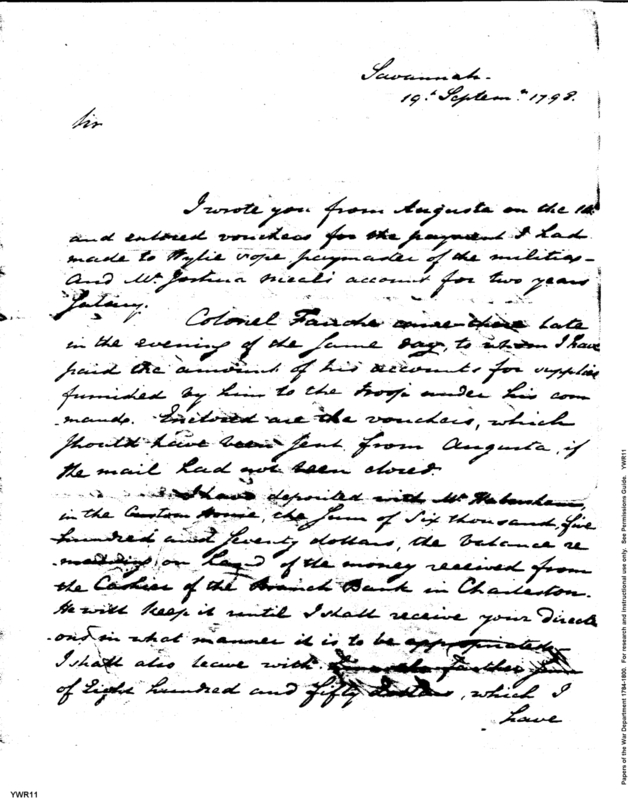 Savannah.
19th Septemr 1798.
Sir
I wrote you from Augusta on the
and enclosed vouchers for the payment I had
made to Wylie Pope paymaster of the militia –
and Mr Joshua Meals account for two years
Salary.
Colonel Fauche came there late
in the evening of the same day, to whom I have
paid the amount of his accounts for supplies
furnished by him to the troop under his com
mand. Enclosed are the vouchers, which
should have been sent from Augusta, if
the mail had not been closed.
I have deposited with Mr Habersham
in the Custom House, the sum of Six thousand, five
hundred and seventy dollars, the balance re
maining on hand of the money received from
the Cashier of the Branch Bank in Charleston.
He will keep it until I shall receive your directi
ons in what manner it is to be appropriated
I shall also leave with the farther sum
of Eight hundred and fifty dollars, which I
have
YWR11
Papers of the War Department 1784-1800. For research and instructional use only. See Permissions Guide. YWR11